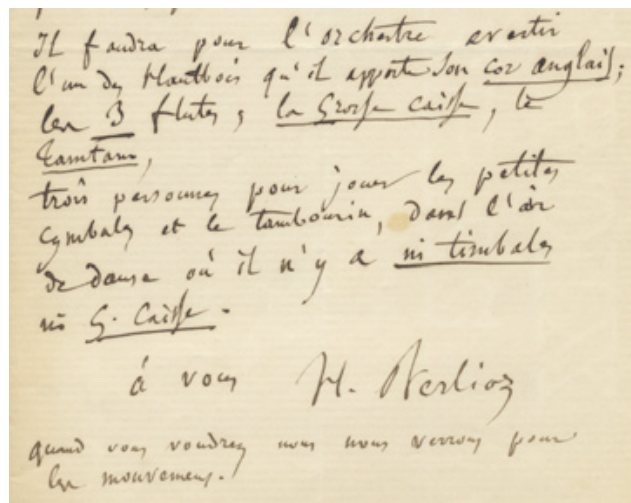 Il faudra pour l'orchestre avertir
l'un des Hautbois qu'il apporte son cor anglais;
les 3 flutes, la Grosse caisse, le
Tamtam,
trois personnes pour jouer les petites
cymbales et le tambourin, dans l'air
de danse où il n'y a ni timbales
ni G. Caisse.
à vous H. Berlioz
quand vous voudrez nous nous verrons pour
les mouvemens.